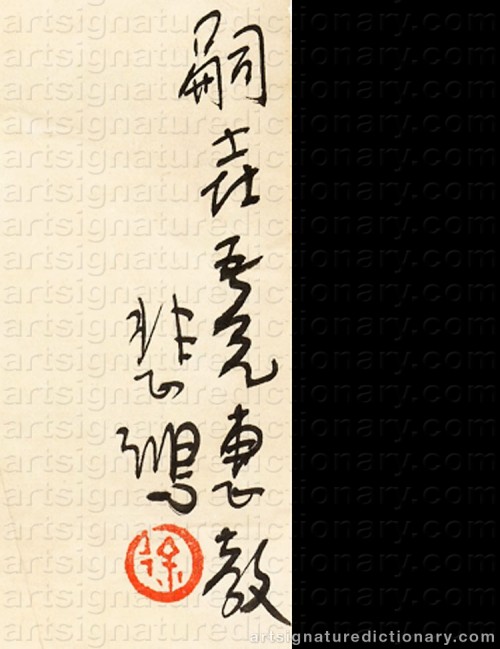 嗣吾兄惠教
悲鴻
徐
artsignaturedictionary.com